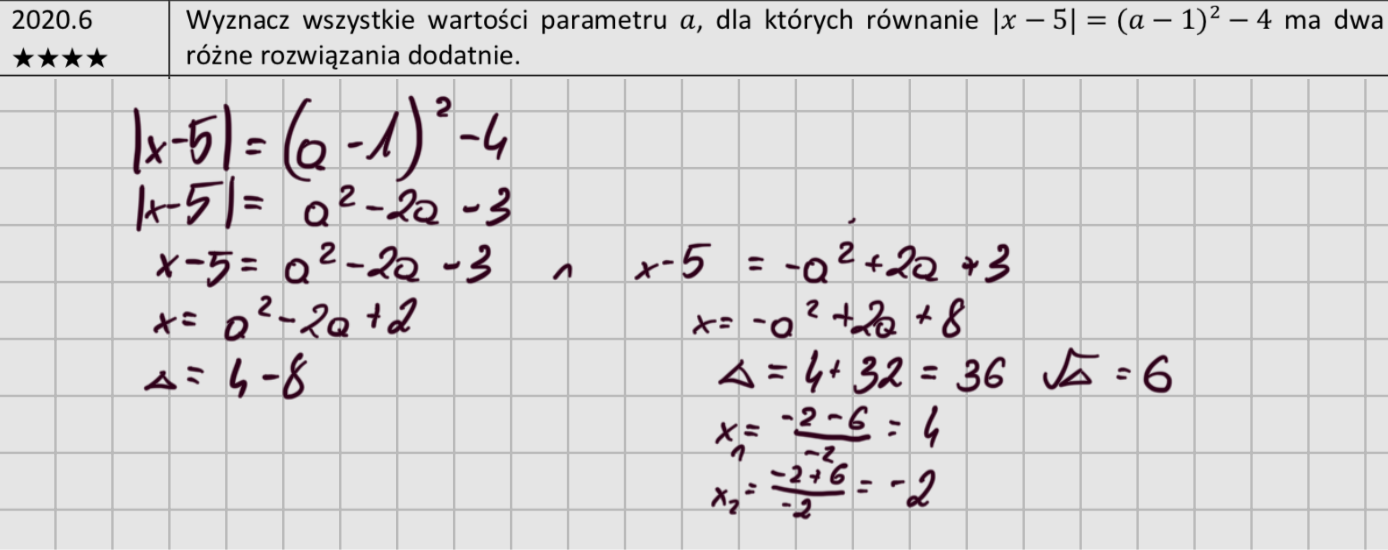 2020.6
★★★★
Wyznacz wszystkie wartości parametru a, dla których równanie |x − 5| = (a − 1)² − 4 ma dwa
różne rozwiązania dodatnie.
|x-5| = (a-1)² -4
|x-5| = a² -2a -3
x-5 = a² -2a -3 ∩ x-5 = -a² +2a +3
x = a² -2a +2 x = -a² +2a +8
Δ = 4-8 Δ = 4+32 = 36 √Δ = 6
x₁ = (-2-6)/(-2) = 4
x₂ = (-2+6)/(-2) = -2